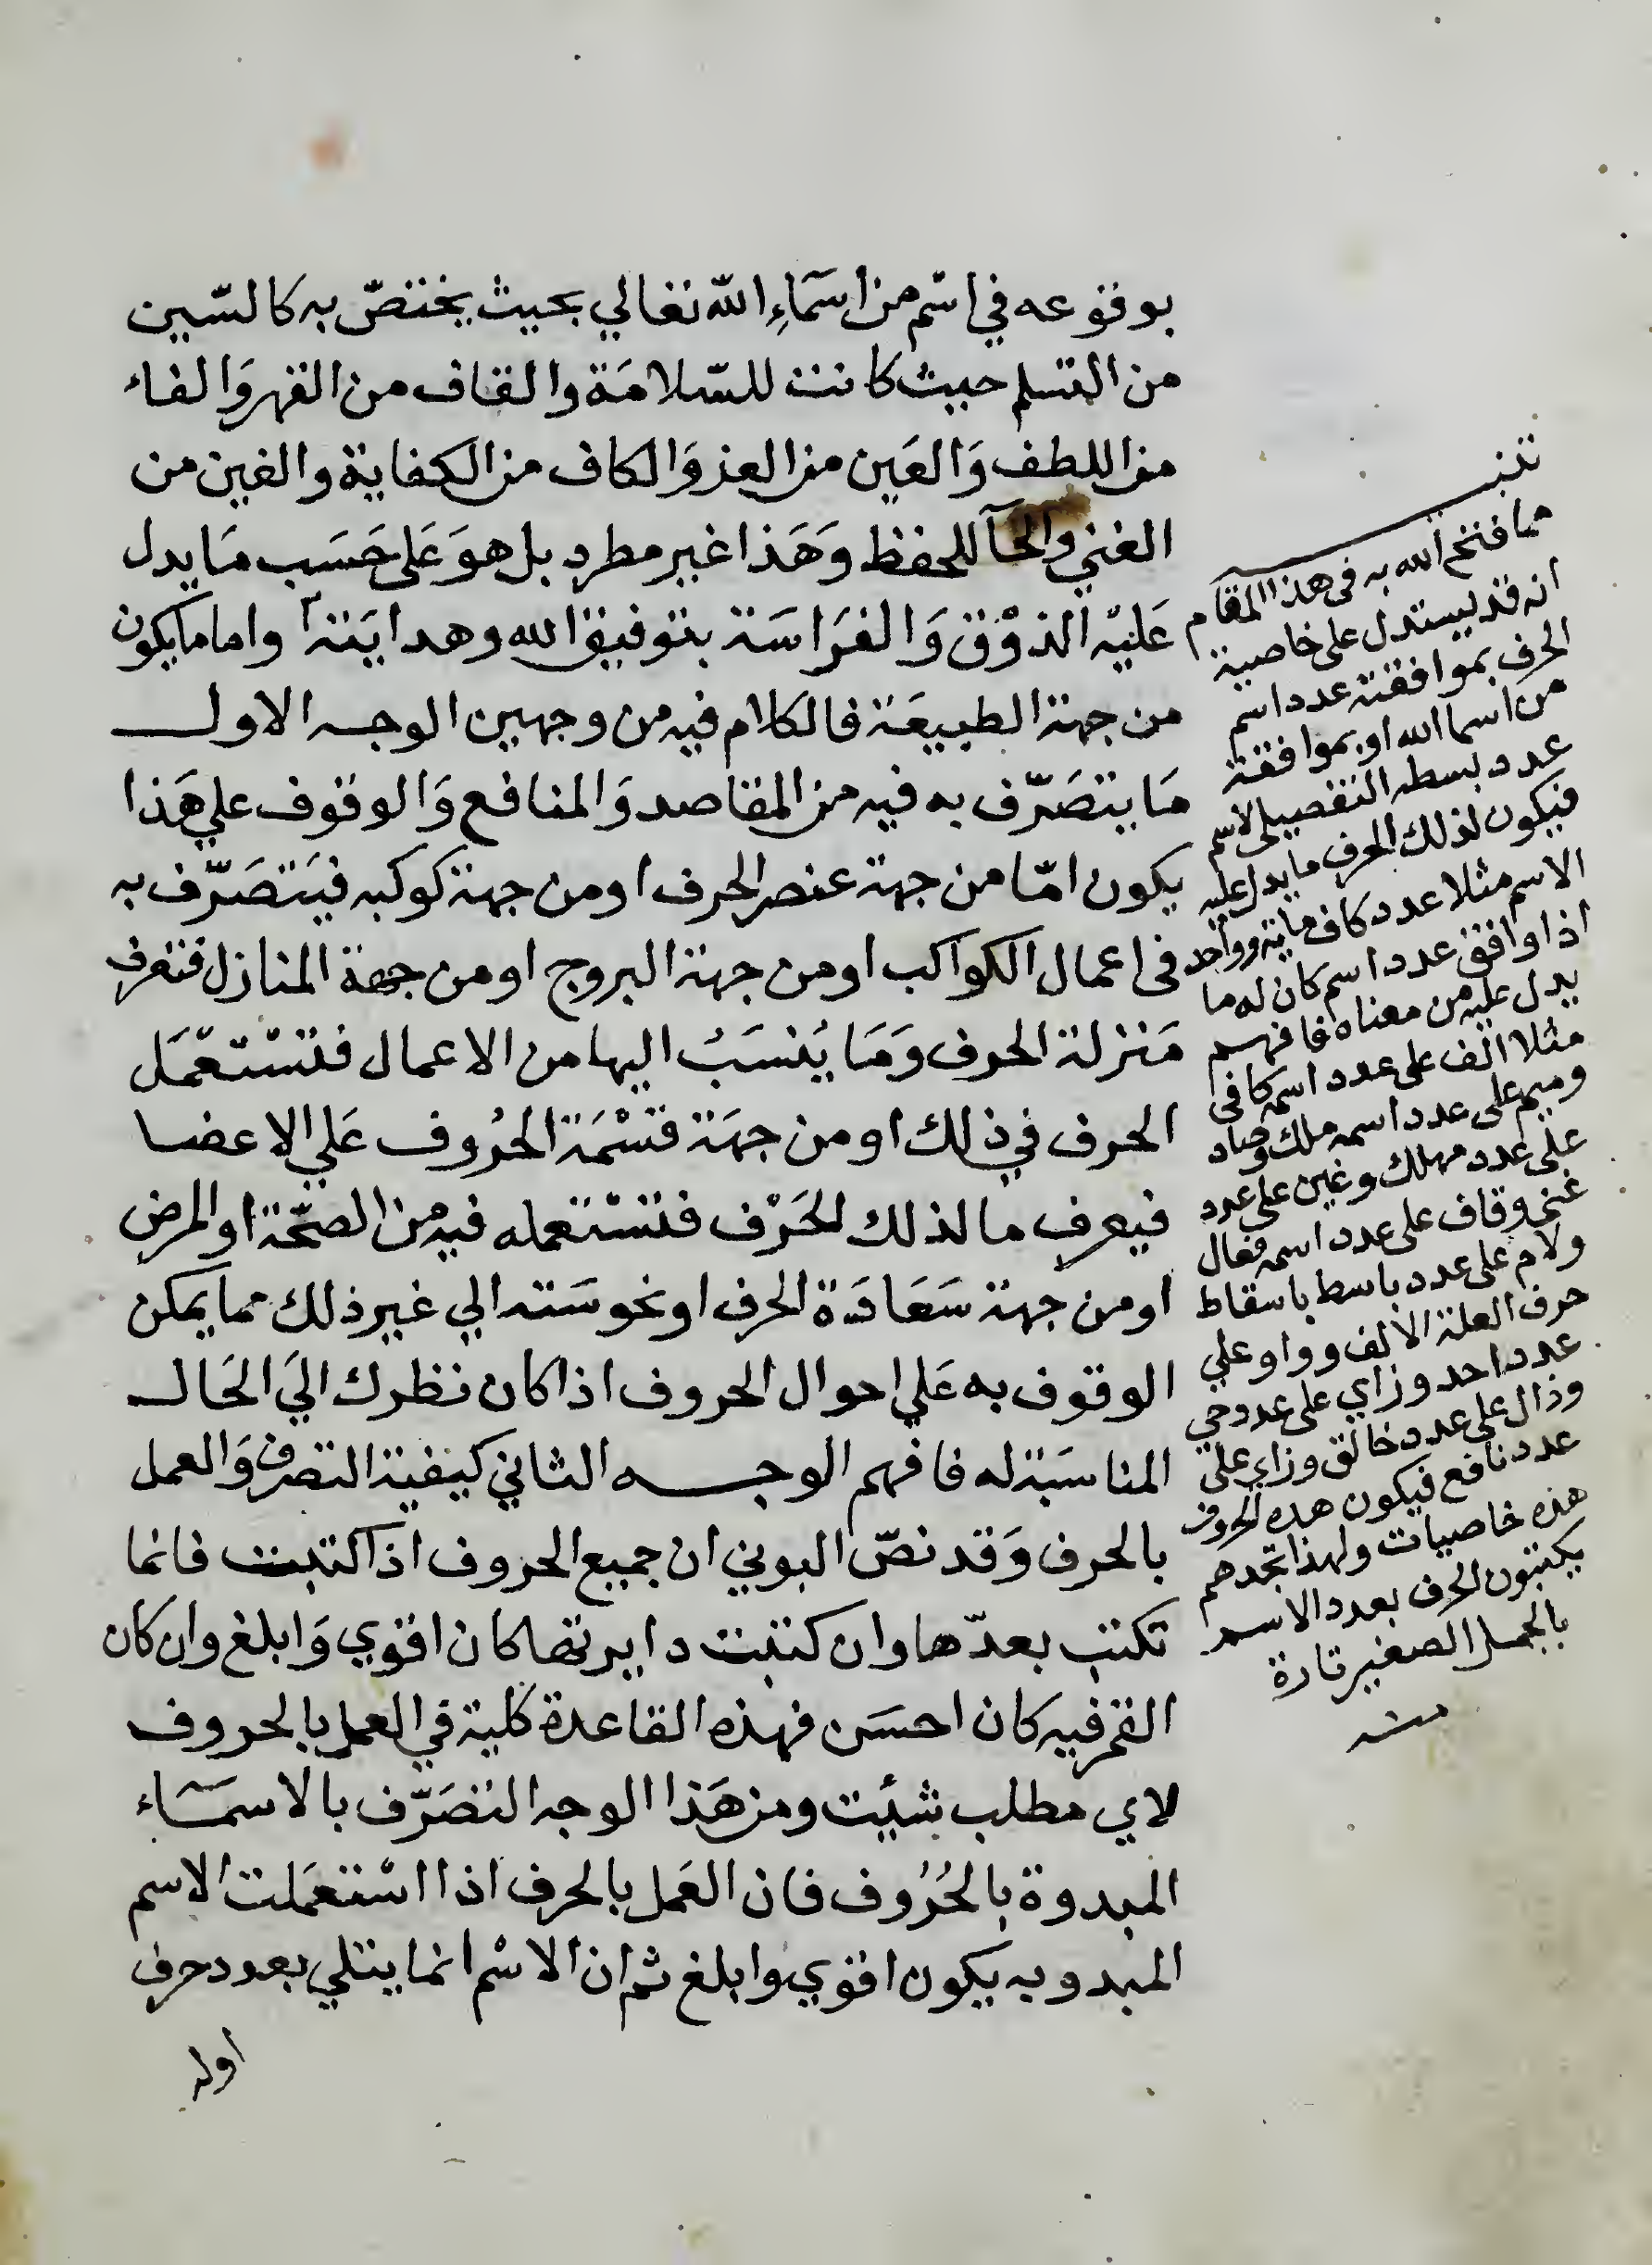 بوقوعه في اسّم من اسَمَاءِ الله تعالي بحيث يختصّ به كالسّين
من التسلم حيث كانت للسّلامَة والقاف من القهر وَالفاء
من اللطف وَالعَين من العز وَالكاف من الكفاية والغين من
الغني والحآ للحفظ وَهَذا غير مطرد بل هوَ عَلى حَسَب مَا يدل
عَليْه الذوْق وَالفرَاسَة بتوفيق الله وهدايَته واما ما يكون
من جهة الطبيعَة فالكلام فيه من وجهين الوجه الاول
مَا يتصَرّف به فيه من المقاصد وَالمنافع وَالوقوف علي هَذا
يكون امّا من جهة عنصر الحرف او من جهة كوكبه فيَتصَرّف به
فى اعمال الكواكب او من جهة البروج او من جهة المنازل فتعرف
مَنزلة الحرف وَمَا يُنسَبُ اليها من الاعمال فتسْتعْمَل
الحرف في ذلك او من جهَة قسْمَة الحُروف عَلي الاعضا
فيعرف ما لذلك الحَرْف فتسْتعمله فيه من الصحّة او المرض
او من جهة سَعَادَة الحرف او نحوسَته الي غير ذلك مما يمكن
الوقوف به عَلي احوال الحروف اذا كان نظرك اليَ الحَال
المناسَبة له فافهم الوجه الثاني كيفية التصرف وَالعمل
بالحرف وَقد نصّ البوني ان جميع الحروف اذا كتبت فانما
تكتب بعدّها وان كتبت دايرتها كان اقوي وَابلغ وان كان
القمر فيه كان احسَن فهذه القاعدة كلية في العمل بالحروف
لاي مطلب شئت ومن هَذا الوجه التصَرّف بالاسمَاء
المبدوة بالحُرُوف فان العَمل بالحرف اذا اسْتعمَلت الاسم
المبدو به يكون اقوي وابلغ ثم ان الاسْم انما يتلي بعدد حرف
اوله
مما فتح الله به فى هذا المقام
انه قد يستدل على خاصية
الحرف بموافقة عدد اسم
من اسما الله او بموافقة
عدد بسطه التفصيلى لاسم
فيكون لذلك الحرف ما يدل عليه
الاسم مثلا عدد كاف ماية وواحد
اذا وافق عدد اسم كان له ما
يدل عليه من معناه فافهم
مثلا الف على عدد اسمه كافى
وميم على عدد اسمه ملك وصاد
على عدد مهلك وغين على عدد
غنى وقاف على عدد اسمه فعال
ولام على عدد باسط باسقاط
حرف العلة الالف وواو علي
عدد احد وزاي على عدد حي
وذال على عدد خالق وزاي على
عدد نافع فيكون هذه الحروف
هذه خاصيات ولهذا تجدهم
يكتبون الحرف بعدد الاسم
بالجمل الصغير تارة
منه